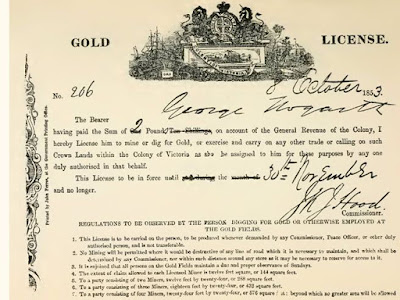 GOLD LICENSE.
No. 206 8 October 1853.
George Hogarth
The Bearer
having paid the Sum of 2 Pounds, Ten Shillings, on account of the General Revenue of the Colony, I
hereby License him to mine or dig for Gold, or exercise and carry on any other trade or calling on such
Crown Lands within the Colony of Victoria as shall be assigned to him for these purposes by any one
duly authorised in that behalf.
This License to be in force until and during the month of 30th November
and no longer.
Commissioner.
REGULATIONS TO BE OBSERVED BY THE PERSON DIGGING FOR GOLD OR OTHERWISE EMPLOYED AT
THE GOLD FIELDS.
1. This License is to be carried on the person, to be produced whenever demanded by any Commissioner, Peace Officer, or other duly
authorised person, and is not transferable.
2. No Mining will be permitted where it would be destructive of any line of road which it is necessary to maintain, and which shall be
determined by any Commissioner, nor within such distance around any store as it may be necessary to reserve for access to it.
3. It is enjoined that all persons on the Gold Fields maintain a due and proper observance of Sundays.
4. The extent of claim allowed to each Licensed Miner is twelve feet square, or 144 square feet.
5. To a party of two Miners, twelve feet by twenty-four, or 288 square feet.
6. To a party consisting of three Miners, eighteen feet by twenty-four, or 432 square feet.
7. To a party consisting of four Miners, twenty-four feet by twenty-four, or 576 square feet; beyond which no greater area will be allowed
Printed by John Ferres, at the Government Printing Office.